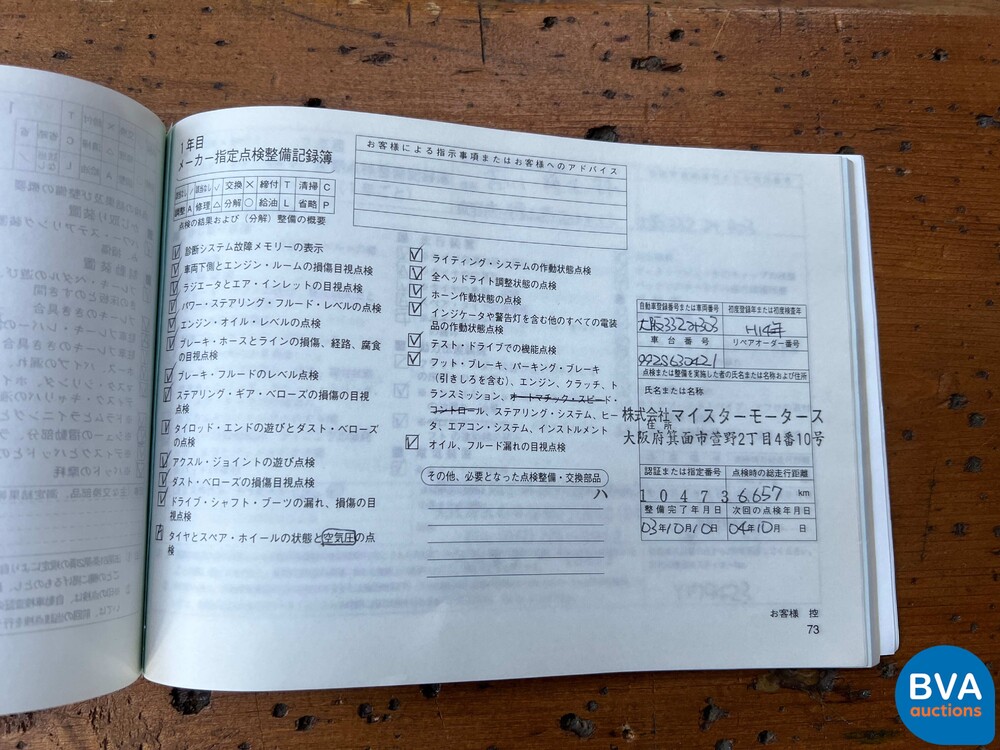 1年目
メーカー指定点検整備記録簿
交換 × 締付 T 清掃 C
調整 A 修理 △ 分解 ○ 給油 L 省略 P
点検の結果および(分解)整備の概要
診断システム故障メモリーの表示
車両下側とエンジン・ルームの損傷目視点検
ラジエータとエア・インレットの目視点検
パワー・ステアリング・フルード・レベルの点検
エンジン・オイル・レベルの点検
ブレーキ・ホースとラインの損傷、経路、腐食
の目視点検
ブレーキ・フルードのレベル点検
ステアリング・ギア・ベローズの損傷の目視
点検
タイロッド・エンドの遊びとダスト・ベローズ
の点検
アクスル・ジョイントの遊び点検
ダスト・ベローズの損傷目視点検
ドライブ・シャフト・ブーツの漏れ、損傷の目
視点検
タイヤとスペア・ホイールの状態と空気圧の点
検
お客様による指示事項またはお客様へのアドバイス
ライティング・システムの作動状態点検
全ヘッドライト調整状態の点検
ホーン作動状態の点検
インジケータや警告灯を含む他のすべての電装
品の作動状態点検
テスト・ドライブでの機能点検
フット・ブレーキ、パーキング・ブレーキ
(引きしろを含む)、エンジン、クラッチ、ト
ランスミッション、オートマチック・スピード・
コントロール、ステアリング・システム、ヒー
タ、エアコン・システム、インストルメント
オイル、フルード漏れの目視点検
その他、必要となった点検整備・交換部品
自動車登録番号または車両番号 初度登録年または初度検査年
H14年
車台番号 リペアオーダー番号
992S630421
点検または整備を実施した者の氏名または名称および住所
氏名または名称
株式会社マイスターモータース
住所
大阪府箕面市萱野2丁目4番10号
認証または指定番号 点検時の総走行距離
1 0 4 7 3 6,657 km
整備完了年月日 次回の点検年月日
03年10月10日 04年10月 日
お客様 控
73
BVA
auctions